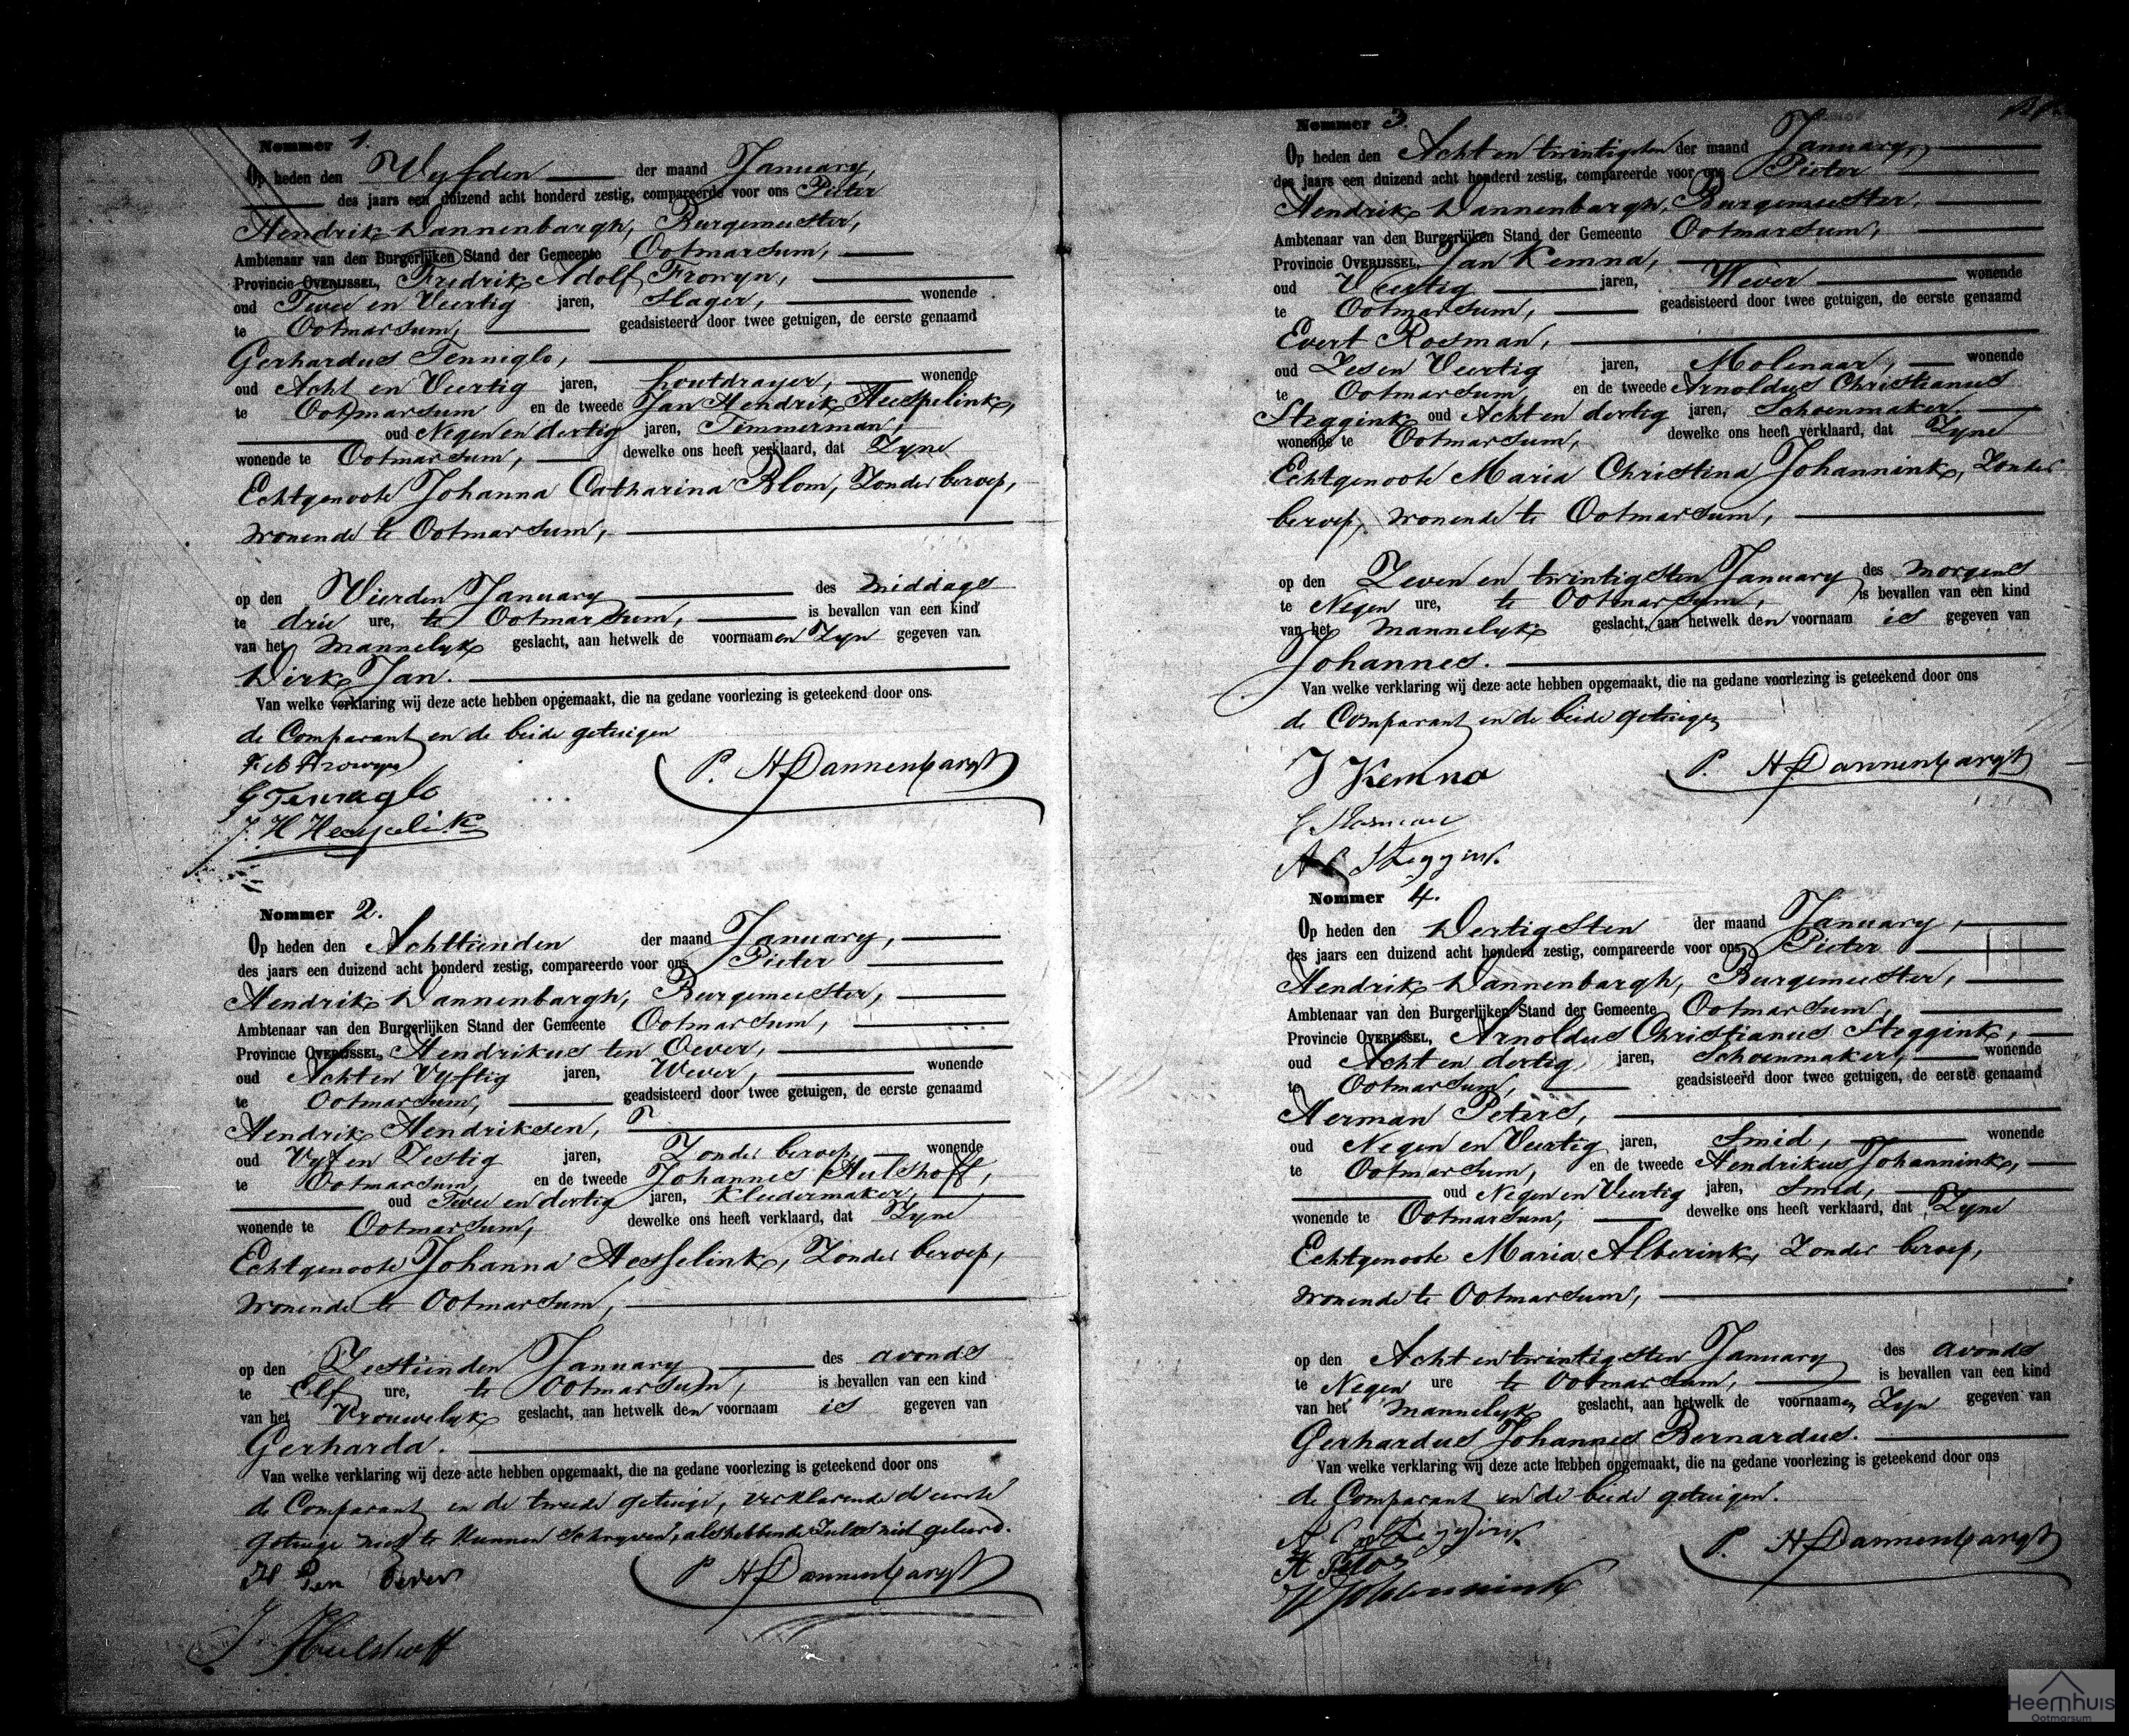 Nommer 1.
Op heden den Vyfden der maand January,
des jaars een duizend acht honderd zestig, compareerde voor ons Pieter
Hendrik Dannenbargh, Burgemeester,
Ambtenaar van den Burgerlijken Stand der Gemeente Ootmarsum,
Provincie OVERIJSSEL, Fredrik Adolf Frowyn,
oud Twee en Veertig jaren, Slager, wonende
te Ootmarsum, geadsisteerd door twee getuigen, de eerste genaamd
Gerhardus Tenniglo,
oud Acht en Veertig jaren, houtdrayer, wonende
te Ootmarsum en de tweede Jan Hendrik Heespelink,
oud Negen en dertig jaren, Timmerman,
wonende te Ootmarsum, dewelke ons heeft verklaard, dat Zyne
Echtgenoote Johanna Catharina Blom, Zonder beroep,
wonende te Ootmarsum,
op den Vierden January des middags
te drie ure, te Ootmarsum, is bevallen van een kind
van het Mannelyk geslacht, aan hetwelk de voornaamen Zyn gegeven van
Dirk Jan.
Van welke verklaring wij deze acte hebben opgemaakt, die na gedane voorlezing is geteekend door ons
de Comparant en de beide getuigen
F A Frowyn
P. H Dannenbargh
G Tenniglo
J. H Heespelink
Nommer 2.
Op heden den Achttienden der maand January,
des jaars een duizend acht honderd zestig, compareerde voor ons Pieter
Hendrik Dannenbargh, Burgemeester,
Ambtenaar van den Burgerlijken Stand der Gemeente Ootmarsum,
Provincie OVERIJSSEL, Hendrikus ten Oever,
oud Acht en Vyftig jaren, Wever, wonende
te Ootmarsum, geadsisteerd door twee getuigen, de eerste genaamd
Hendrik Hendriksen,
oud Vyf en Zestig jaren, Zonder beroep, wonende
te Ootmarsum, en de tweede Johannes Hulshoff,
oud Twee en dertig jaren, Kleedermaker,
wonende te Ootmarsum, dewelke ons heeft verklaard, dat Zyne
Echtgenoote Johanna Hesselink, Zonder beroep,
wonende te Ootmarsum,
op den Zestienden January des avonds
te Elf ure, te Ootmarsum, is bevallen van een kind
van het Vrouwelyk geslacht, aan hetwelk den voornaam is gegeven van
Gerharda.
Van welke verklaring wij deze acte hebben opgemaakt, die na gedane voorlezing is geteekend door ons
de Comparant en de tweede getuige, verklarende de eerste
getuige niet te kunnen schryven, als hebbende Zulks niet geleerd.
H Ten Oever
P H Dannenbargh
J Hulshoff
Nommer 3.
Op heden den Acht en twintigsten der maand January,
des jaars een duizend acht honderd zestig, compareerde voor ons Pieter
Hendrik Dannenbargh, Burgemeester,
Ambtenaar van den Burgerlijken Stand der Gemeente Ootmarsum,
Provincie OVERIJSSEL, Jan Kemna,
oud Veertig jaren, Wever wonende
te Ootmarsum, geadsisteerd door twee getuigen, de eerste genaamd
Evert Rosman,
oud Zes en Veertig jaren, Molenaar, wonende
te Ootmarsum, en de tweede Arnoldus Christianus
Steggink oud Acht en dertig jaren, Schoenmaker,
wonende te Ootmarsum, dewelke ons heeft verklaard, dat Zyne
Echtgenoote Maria Christina Johannink, Zonder
beroep, wonende te Ootmarsum,
op den Zeven en twintigsten January des morgens
te Negen ure, te Ootmarsum, is bevallen van een kind
van het Mannelyk geslacht, aan hetwelk den voornaam is gegeven van
Johannes.
Van welke verklaring wij deze acte hebben opgemaakt, die na gedane voorlezing is geteekend door ons
de Comparant en de beide getuigen
J Kemna
P. H Dannenbargh
E Rosman
A C Steggink
Nommer 4.
Op heden den Dertigsten der maand January,
des jaars een duizend acht honderd zestig, compareerde voor ons Pieter
Hendrik Dannenbargh, Burgemeester,
Ambtenaar van den Burgerlijken Stand der Gemeente Ootmarsum,
Provincie OVERIJSSEL, Arnoldus Christianus Steggink,
oud Acht en dertig jaren, Schoenmaker, wonende
te Ootmarsum, geadsisteerd door twee getuigen, de eerste genaamd
Herman Peters,
oud Negen en Veertig jaren, Smid, wonende
te Ootmarsum, en de tweede Hendrikus Johannink,
oud Negen en Veertig jaren, Smid,
wonende te Ootmarsum, dewelke ons heeft verklaard, dat Zyne
Echtgenoote Maria Alberink, Zonder beroep,
wonende te Ootmarsum,
op den Acht en twintigsten January des avonds
te Negen ure te Ootmarsum, is bevallen van een kind
van het Mannelyk geslacht, aan hetwelk de voornaamen Zyn gegeven van
Gerhardus Johannes Bernardus.
Van welke verklaring wij deze acte hebben opgemaakt, die na gedane voorlezing is geteekend door ons
de Comparant en de beide getuigen.
A C Steggink
P. H Dannenbargh
H Peters
H Johannink
Heemhuis
Ootmarsum